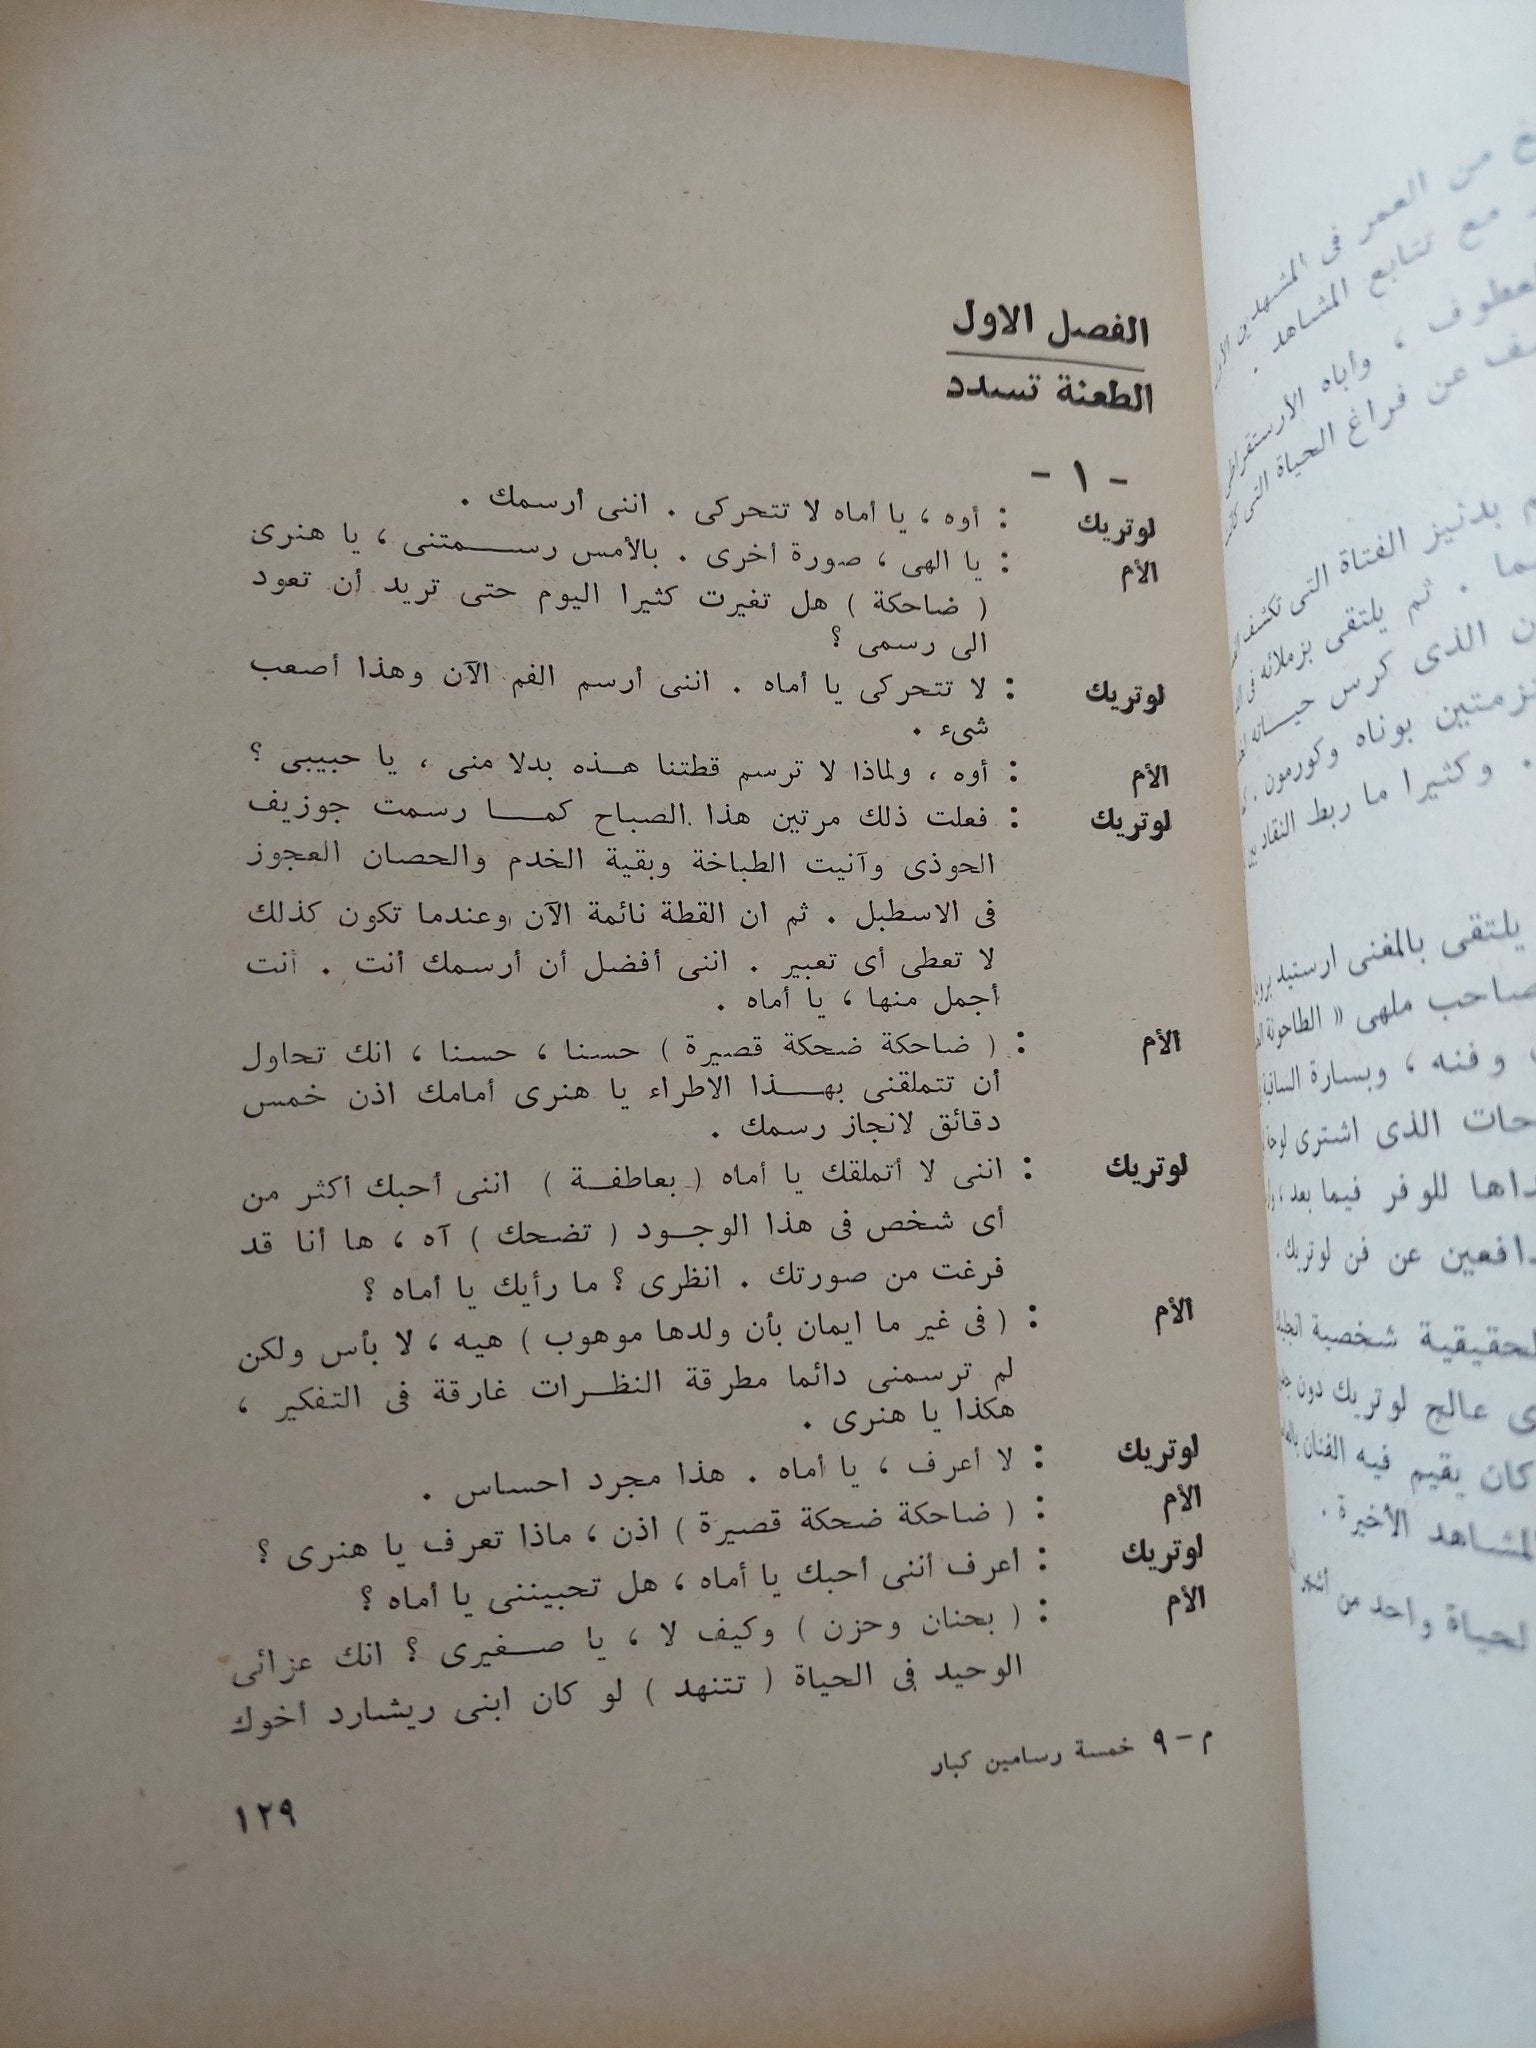 الفصل الاول
الطعنة تسدد
- ١ -
لوتريك : أوه ، يا أماه لا تتحركى . اننى أرسمك .
الأم : يا الهى ، صورة أخرى . بالأمس رسمتنى ، يا هنرى
( ضاحكة ) هل تغيرت كثيرا اليوم حتى تريد أن تعود
الى رسمى ؟
لوتريك : لا تتحركى يا أماه . اننى أرسم الفم الآن وهذا أصعب
شىء .
الأم : أوه ، ولماذا لا ترسم قطتنا هذه بدلا منى ، يا حبيبى ؟
لوتريك : فعلت ذلك مرتين هذا الصباح كما رسمت جوزيف
الحوذى وآنيت الطباخة وبقية الخدم والحصان العجوز
فى الاسطبل . ثم ان القطة نائمة الآن وعندما تكون كذلك
لا تعطى أى تعبير . اننى أفضل أن أرسمك أنت . أنت
أجمل منها ، يا أماه .
الأم : ( ضاحكة ضحكة قصيرة ) حسنا ، حسنا ، انك تحاول
أن تتملقنى بهذا الاطراء يا هنرى أمامك اذن خمس
دقائق لانجاز رسمك .
لوتريك : اننى لا أتملقك يا أماه ( بعاطفة ) اننى أحبك أكثر من
أى شخص فى هذا الوجود ( تضحك ) آه ، ها أنا قد
فرغت من صورتك . انظرى ؟ ما رأيك يا أماه ؟
الأم : ( فى غير ما ايمان بأن ولدها موهوب ) هيه ، لا بأس ولكن
لم ترسمنى دائما مطرقة النظرات غارقة فى التفكير ،
هكذا يا هنرى .
لوتريك : لا أعرف ، يا أماه . هذا مجرد احساس .
الأم : ( ضاحكة ضحكة قصيرة ) اذن ، ماذا تعرف يا هنرى ؟
لوتريك : أعرف أننى أحبك يا أماه ، هل تحبيننى يا أماه ؟
الأم : ( بحنان وحزن ) وكيف لا ، يا صغيرى ؟ انك عزائى
الوحيد فى الحياة ( تتنهد ) لو كان ابنى ريشارد أخوك
م - ٩ خمسة رسامين كبار
١٢٩
من العمر فى المشهدين
مع تتابع المشاهد .
، وأباه الأرستقراطى
عن فراغ الحياة التى
بدنيز الفتاة التى تكشف
. ثم يلتقى بزملائه فى
الذى كرس حياته
بوناه وكورمون .
. وكثيرا ما ربط النقاد بين
يلتقى بالمغنى ارستيد
صاحب ملهى « الطاحونة
وفنه ، وبسارة
الذى اشترى
للوفر فيما بعد ،
عن فن لوتريك .
شخصية
عالج لوتريك دون
كان يقيم فيه الفنان
المشاهد الأخيرة .
واحد من أشهر